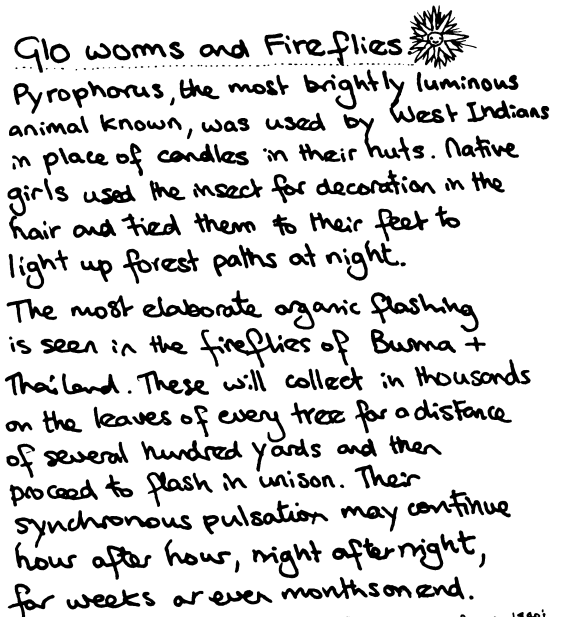 Glo worms and Fireflies.
Pyrophorus, the most brightly luminous
animal known, was used by West Indians
in place of candles in their huts. Native
girls used the insect for decoration in the
hair and tied them to their feet to
light up forest paths at night.
The most elaborate organic flashing
is seen in the fireflies of Burma +
Thailand. These will collect in thousands
on the leaves of every tree for a distance
of several hundred yards and then
proceed to flash in unison. Their
synchronous pulsation may continue
hour after hour, night after night,
for weeks or even months on end.